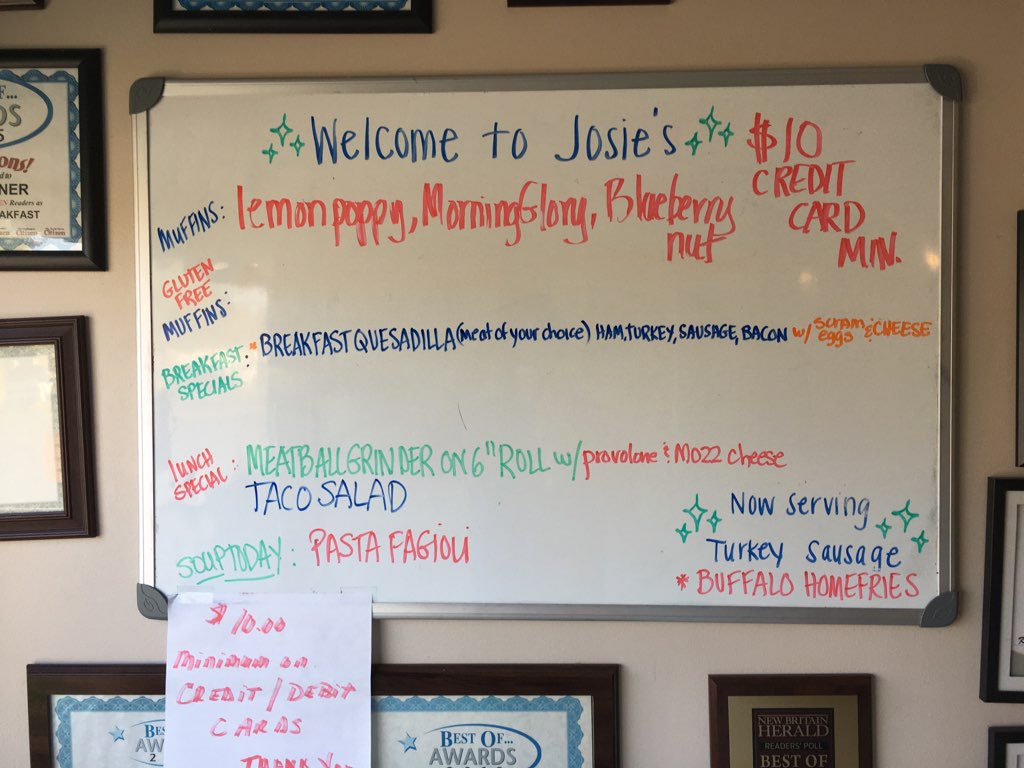 Welcome to Josie's
$10
CREDIT
CARD
MIN.
MUFFINS: lemon poppy, Morning Glory, Blueberry
nut
GLUTEN
FREE
MUFFINS:
BREAKFAST
SPECIALS : * BREAKFAST QUESADILLA (meat of your choice) HAM, TURKEY, SAUSAGE, BACON w/ scram eggs & CHEESE
LUNCH
SPECIAL : MEATBALL GRINDER ON 6" ROLL w/ provolone & Mozz cheese
TACO SALAD
SOUP TODAY : PASTA FAGIOLI
Now Serving
Turkey Sausage
* BUFFALO HOMEFRIES
$10.00
Minimum on
CREDIT/DEBIT
CARDS
THANK YOU
NER
Readers as
AKFAST
Citizen
BES
AW
2
BEST OF...
AWARDS
NEW BRITAIN
HERALD
READERS' POLL
BEST OF